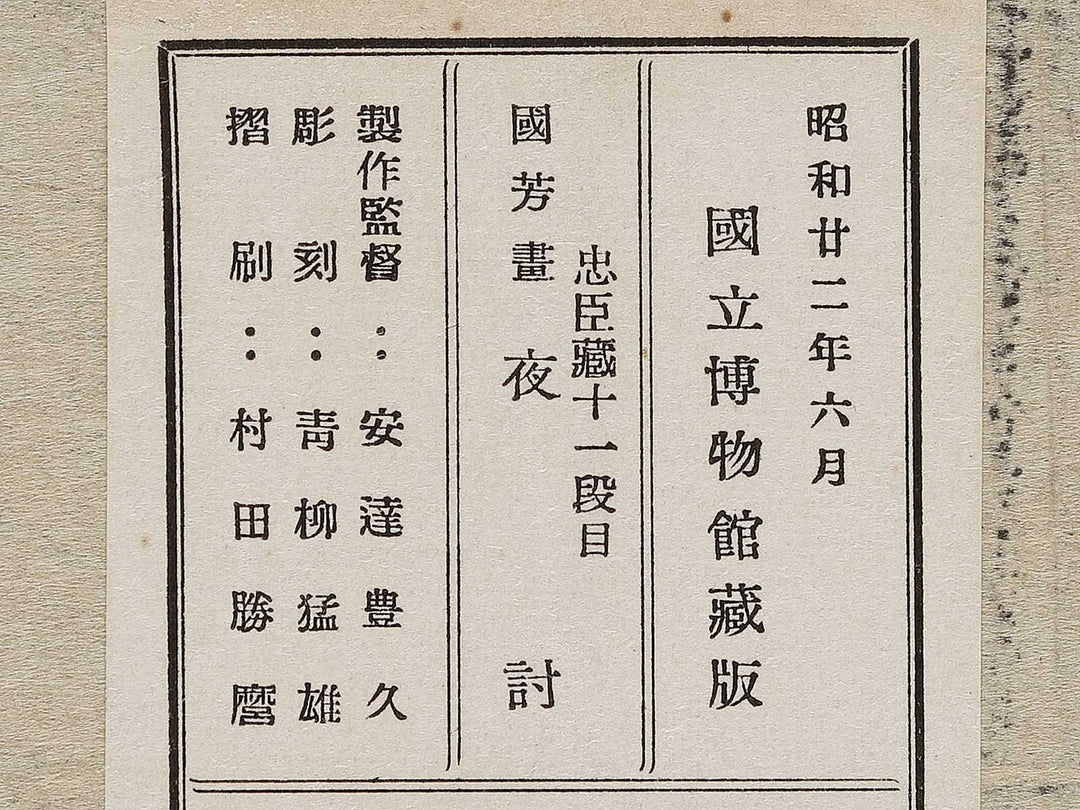 昭和廿二年六月
國立博物館藏版
忠臣藏十一段目
國芳畫 夜討
製作監督:安達豊久
彫刻:青柳猛雄
摺刷:村田勝麿